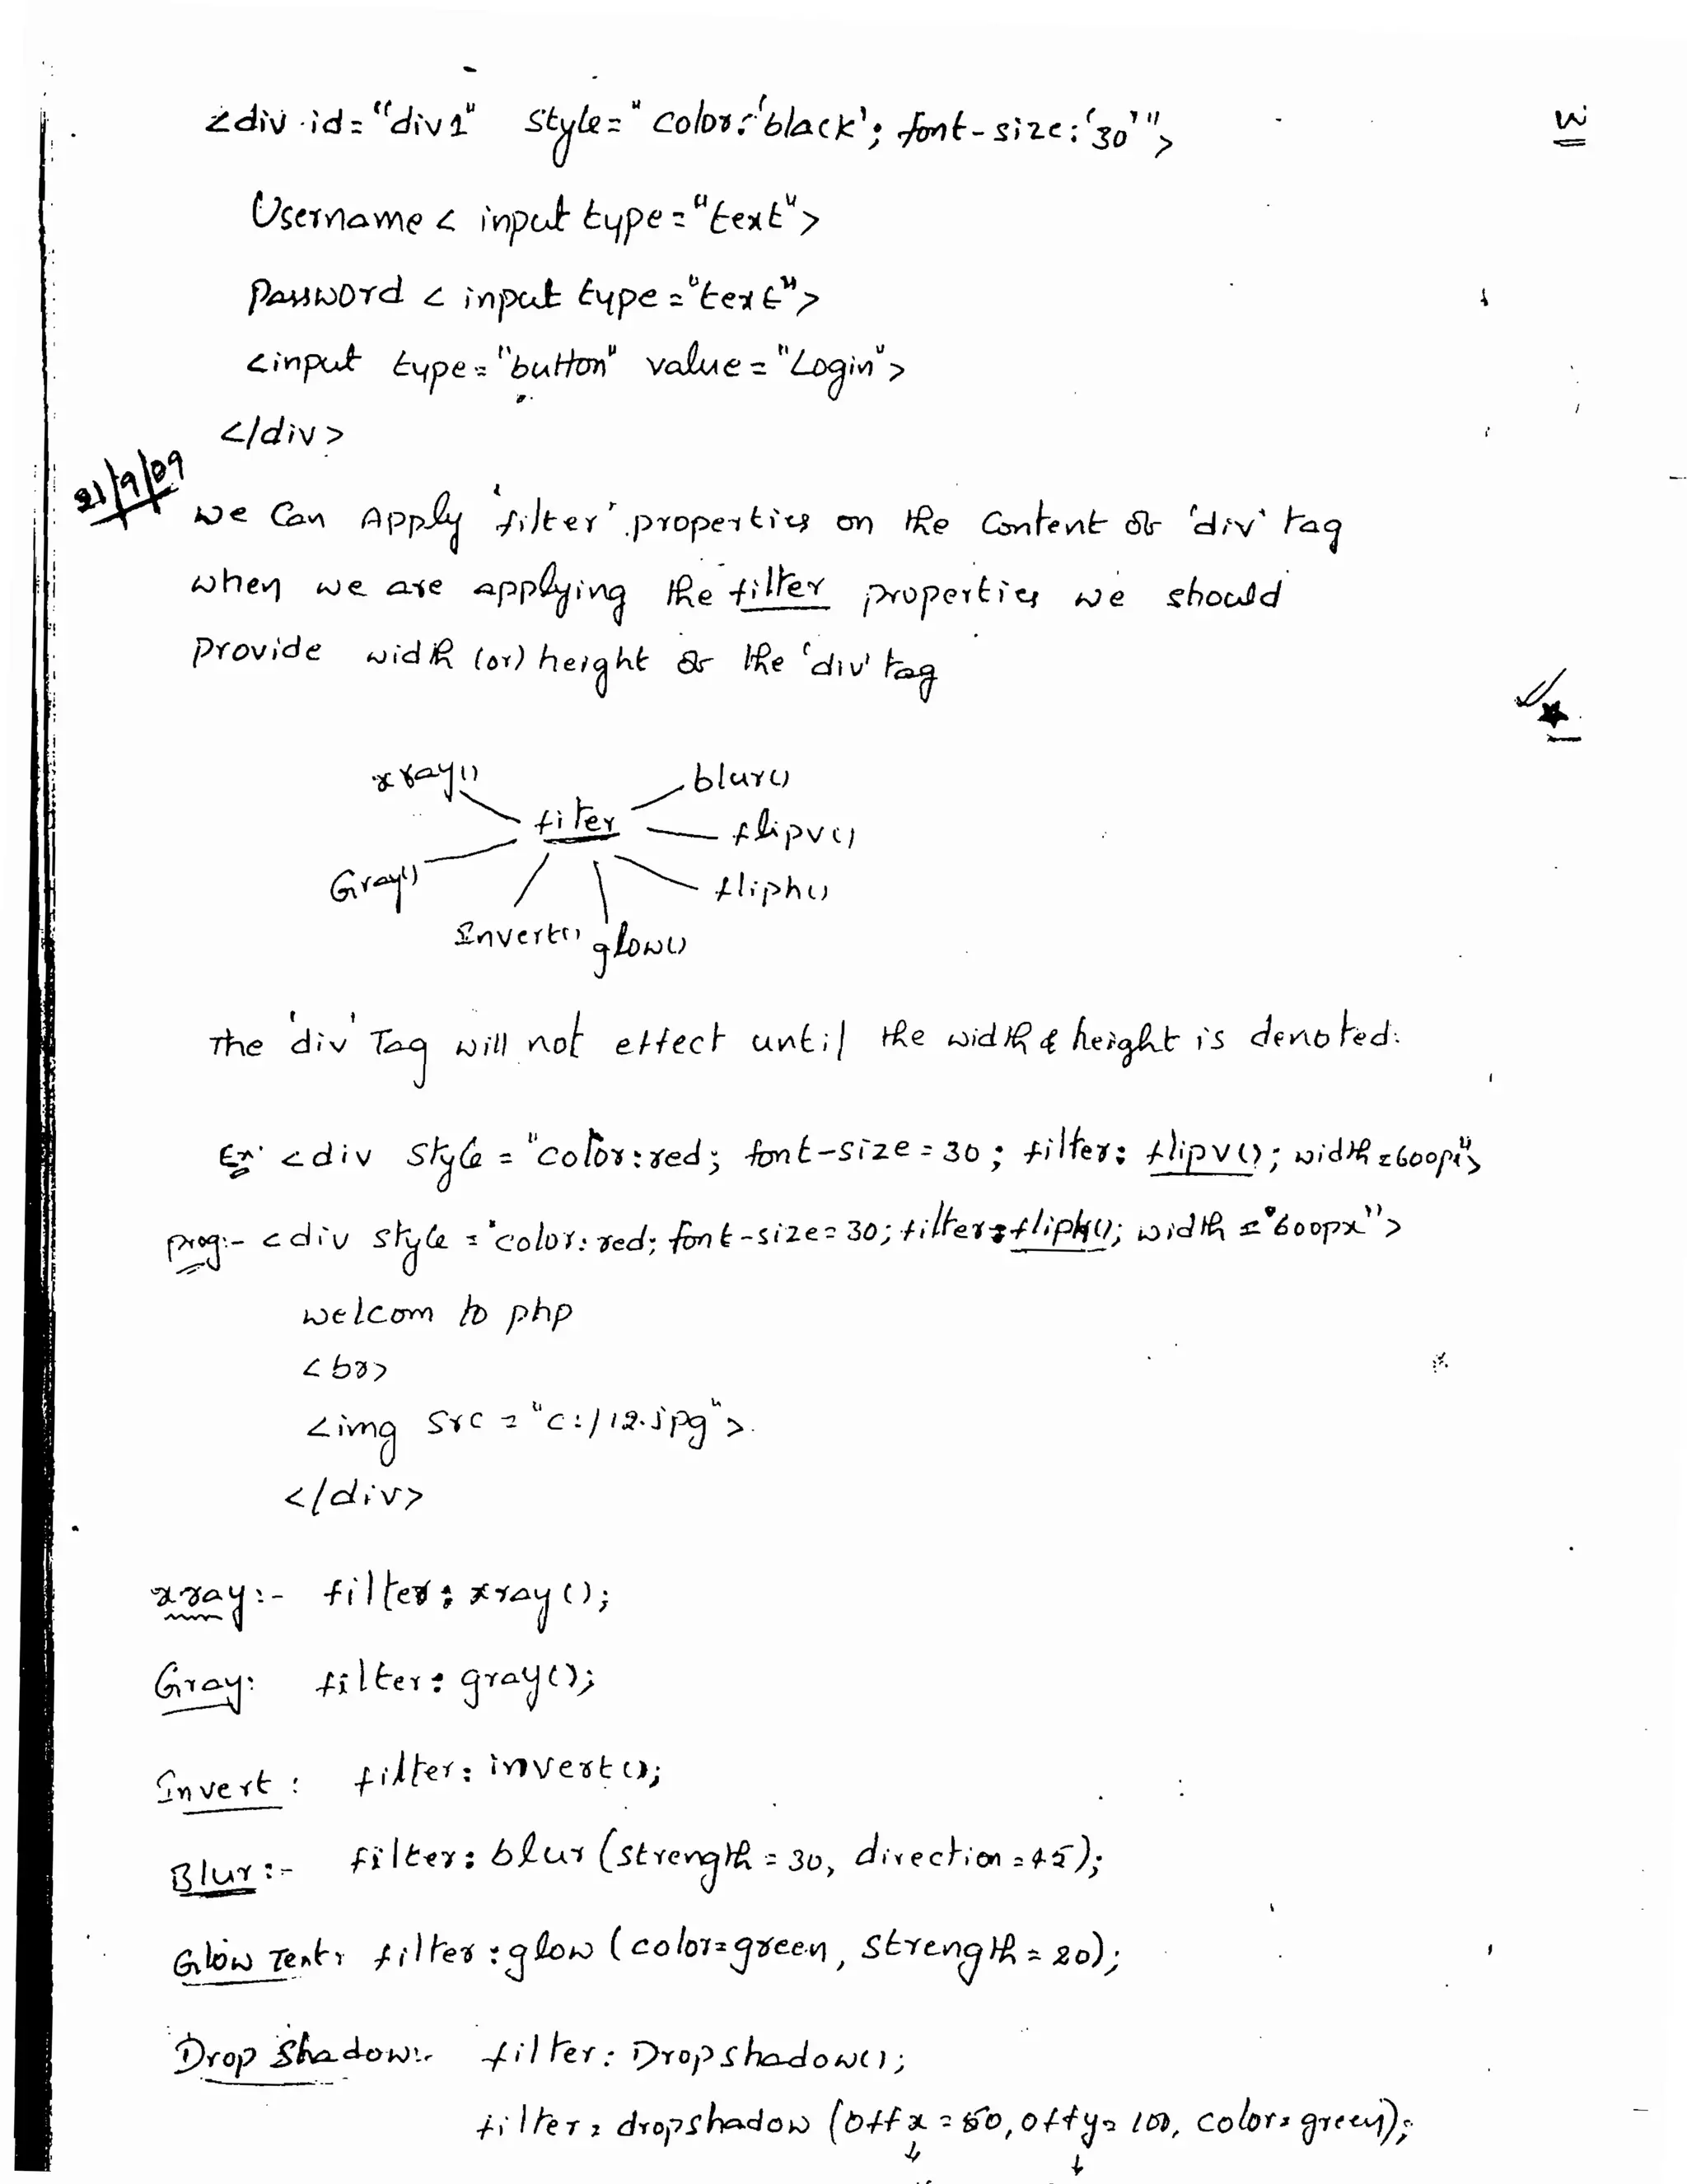 <div id="div1" style="color:'black'; font-size:'30'">
Username < input type="text">
Password < input type="text">
<input type="button" value="Login">
</div>
21/9/09
we Can Apply 'filter' properties on the Content of 'div' tag
when we are applying the filter properties we should
provide width (or) height of the 'div' tag
xray() blur()
filter
flipv()
Gray() fliph()
Invert() glow()
The 'div' Tag will not effect until the width & height is denoted.
Ex: <div style="color:red; font-size=30; filter: flipv(); width=600px">
prog:- <div style="color:red; font-size=30; filter:fliph(); width="600px">
welcom to php
<br>
<img src="c:/12.jpg">
</div>
xray:- filter: xray();
Gray: filter: gray();
Invert: filter: invert();
Blur:- filter: blur (strength=30, direction=45);
Glow Text: filter: glow (color=green, strength=20);
Drop Shadow:- filter: Dropshadow();
filter: dropshadow (offx=50, offy=100, color=green);